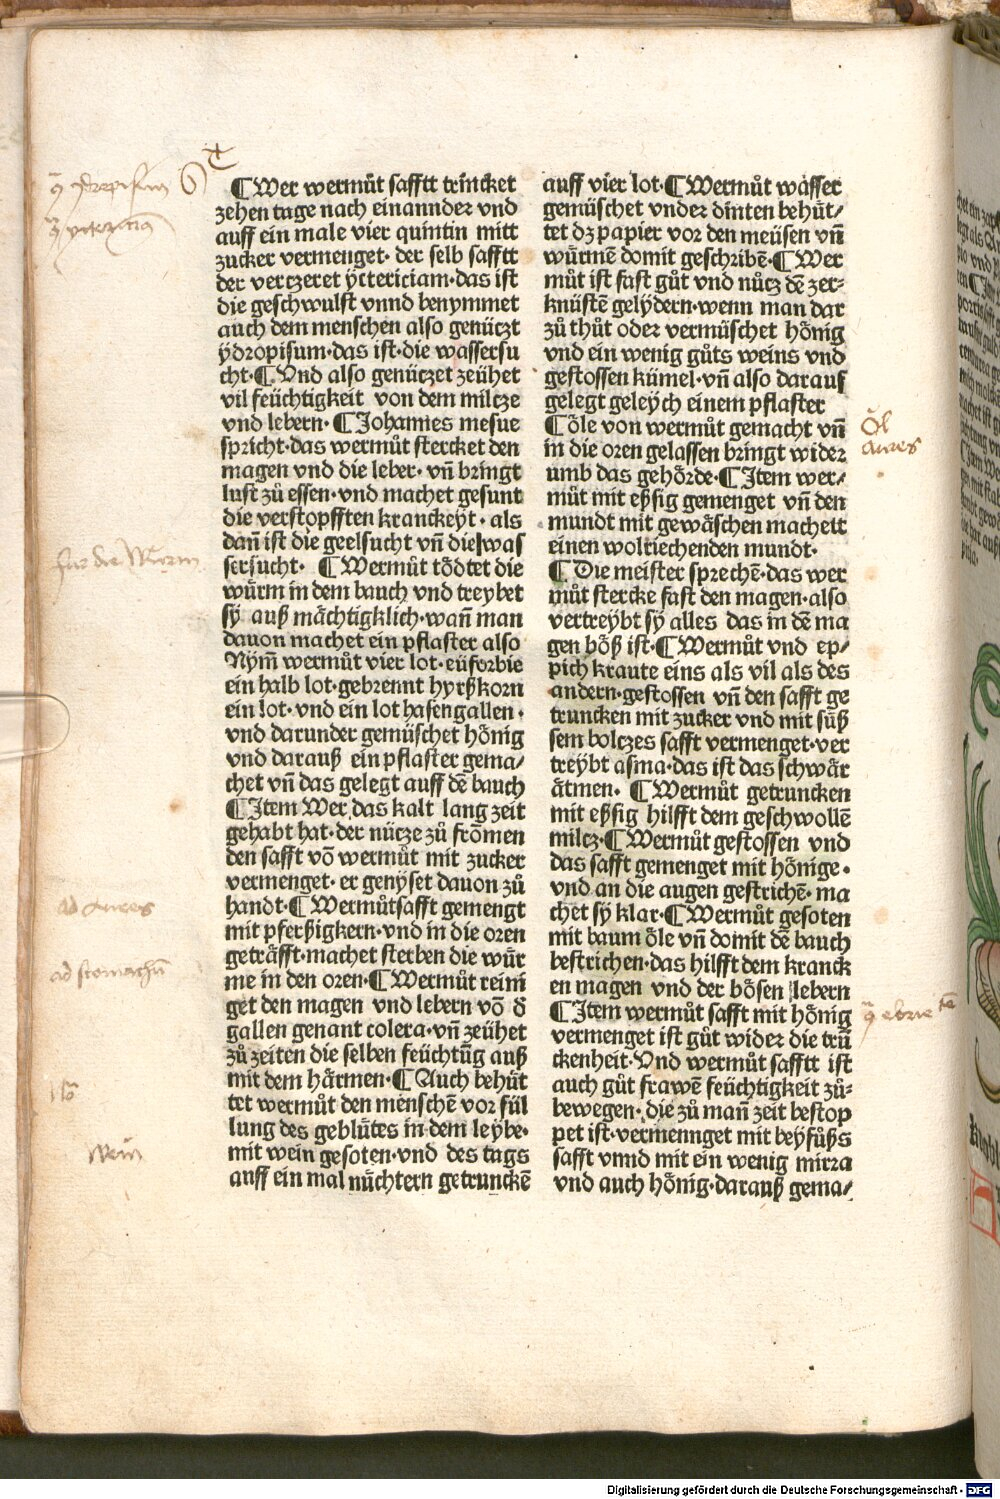 ¶Wer wermůt safftt trincket
zehen tage nach einannder vnd
auff ein male vier quintin mitt
zucker vermenget· der selb safftt
der verczeret ÿctericiam·das ist
die geschwulst vnnd benymmet
auch dem menschen also genüczt
ÿdropisum·das ist·die wassersu
cht·¶Vnd also genüczet zeühet
vil feüchtigkeit von dem milcze
vnd lebern· ¶Johannes mesue
spricht·das wermůt stercket den
magen vnd die leber· vn̄ bringt
lust zů essen·vnd machet gesunt
die verstopfften kranckeyt· als
dan̄ ist die geelsucht vn̄ die was
sersucht· ¶Wermůt tödtet die
würm in dem bauch vnd treybet
sÿ auß mächtigklich·wan̄ man
dauon machet ein pflaster also
Nÿm̄ wermůt vier lot·eüforbie
ein halb lot·gebrennt hyrßkorn
ein lot·vnd ein lot hafengallen·
vnd darunder gemüschet hönig
vnd darauß ein pflaster gema/
chet vn̄ das gelegt auff dē bauch
¶Item Wer das kalt lang zeit
gehabt hat·der nücze zů frömen
den safft vō wermůt mit zucker
vermenget· er genÿset dauon zů
handt·¶Wermůtsafft gemengt
mit pferßigkern·vnd in die oren
geträfft·machet sterben die wür
me in den oren·¶Wermůt reini
get den magen vnd lebern vō d̄
gallen genant colera·vn̄ zeühet
zů zeiten die selben feüchtūg auß
mit dem härmen·¶Auch behüt
tet wermůt den menschē vor fül
lung des geblütes in dem leÿbe·
mit wein gesoten·vnd des tags
auff ein mal nüchtern getrunckē
auff vier lot·¶Wermůt wasser
gemüschet vnder dinten behüt/
tet dz papier vor den meüsen vn̄
würmē domit geschribē·¶Wer
můt ist fast gůt vnd nücz dē zer-
knüstē gelÿdern·wenn man dar
zů thůt oder vermüschet hönig
vnd ein wenig gůts weins vnd
gestossen kümel·vn̄ also darauf
gelegt geleÿch einem pflaster
¶Öle von wermůt gemacht vn̄
in die oren gelassen bringt wider
umb das gehörde·¶Item wer/
můt mit eßsig gemenget vn̄ den
mundt mit gewäschen machett
einen wolriechenden mundt·
¶Die meister sprechē·das wer
můt stercke fast den magen·also
vertreÿbt sÿ alles das in dē ma
gen böß ist·¶Wermůt vnd ep/
pich kraute eins als vil als des
andern·gestossen vn̄ den safft ge
truncken mit zucker vnd mit süß
sem bolczes safft vermenget·ver
treÿbt asma·das ist das schwär
ätmen· ¶Wermůt getruncken
mit eßsig hilfft dem geschwollē
milcz·¶Wermůt gestossen vnd
das safft gemenget mit hönige·
vnd an die augen gestrichē· ma
chet sÿ klar·¶Wermůt gesoten
mit baum öle vn̄ domit dē bauch
bestrichen·das hilfft dem kranck
en magen vnd der bösen lebern
¶Item wermůt safft mit hönig
vermenget ist gůt wider die trū
ckenheit·Vnd wermůt safftt ist
auch gůt frawē feüchtigkeit zů-
bewegen· die zů man̄ zeit bestop
pet ist·vermennget mit beÿfůßs
safft vnnd mit ein wenig mirra
vnd auch hönig·darauß gema/
für die Würm
ad aures
ad stomachū
Wein
Öl
aures
Digitalisierung gefördert durch die Deutsche Forschungsgemeinschaft - DFG